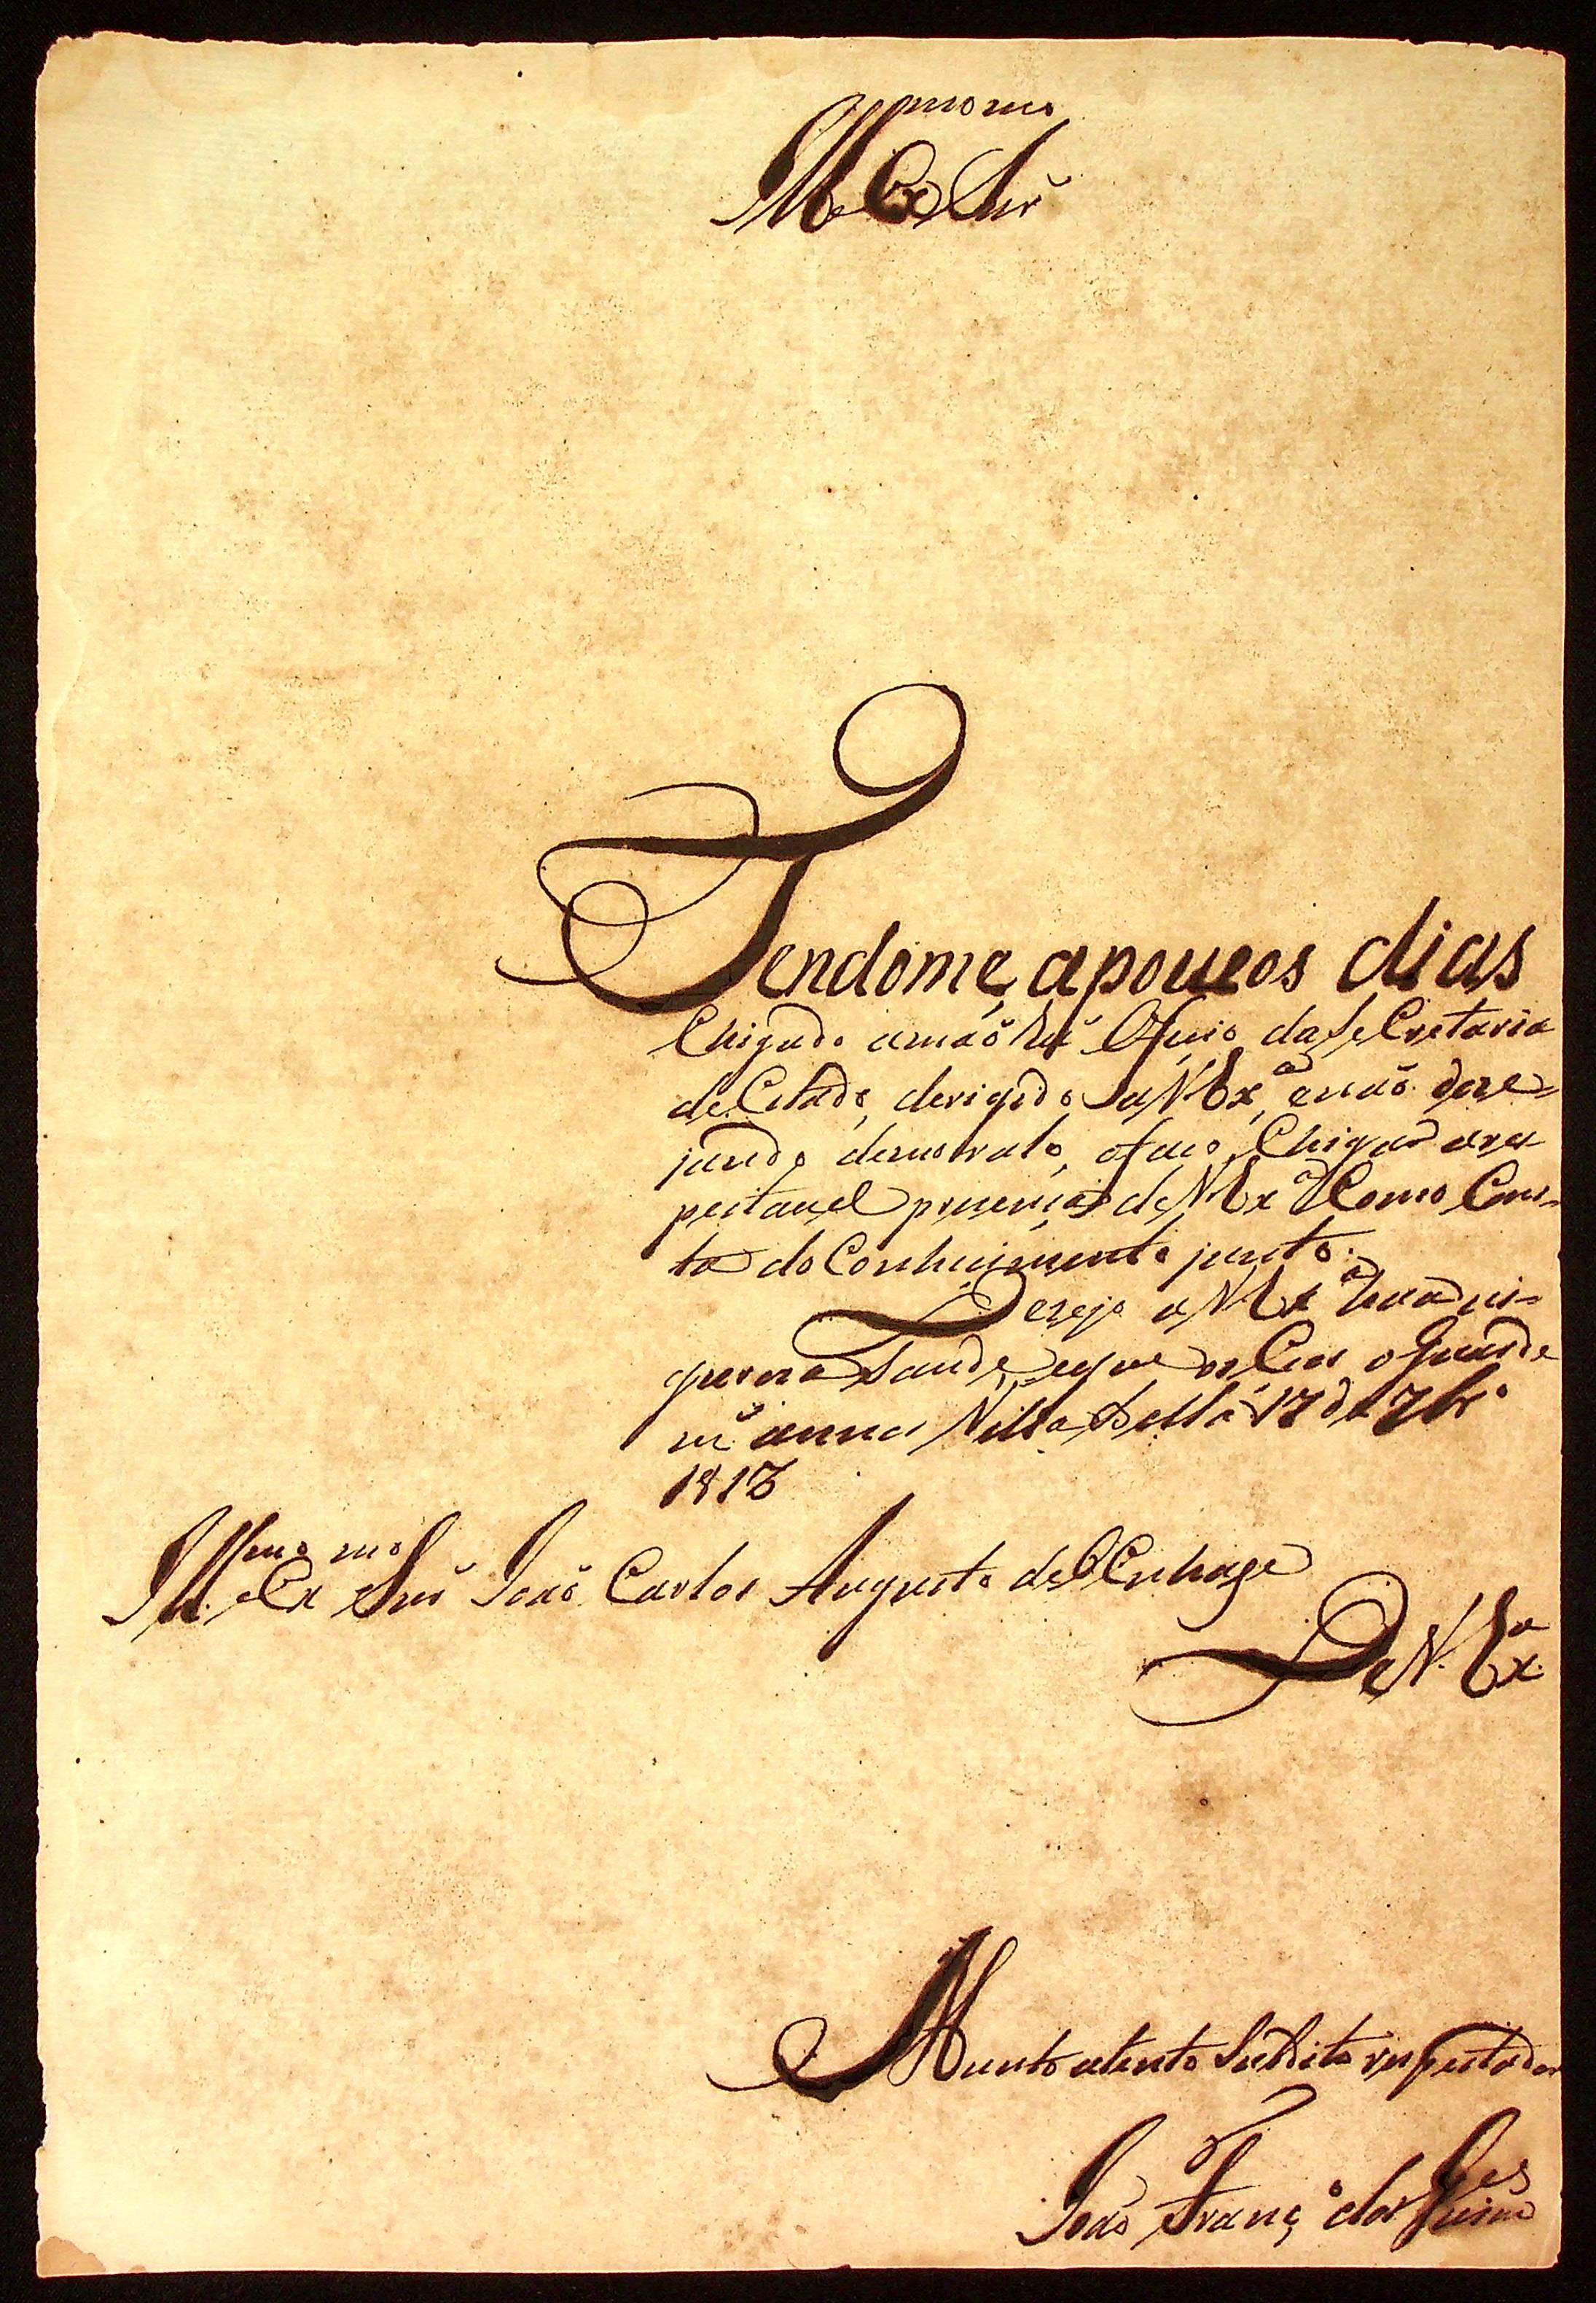 mo mo
Ill e Ex Snr
Tendome apoucos dias
Chigado amaõ hũ Oficio da SeCretaria
de Estado derigido a V Ex.a enaõ deze-
jando demoralo, ofaço Chigar ares
peitavel prezença de V Ex.a Como Cons-
ta do Conhecimento junto.
Dezejo a V Ex.a huã vi-
gueroza Saude eque os Ceos o Guarde
m.s annos Villa 17 de 7br.o
1813
Ill.mo e Ex.mo Snr Joaõ Carlos Augusto de
De V. Ex.a
Muito atento Subdito respeitador
Joaõ Franc.o dos Guim.es